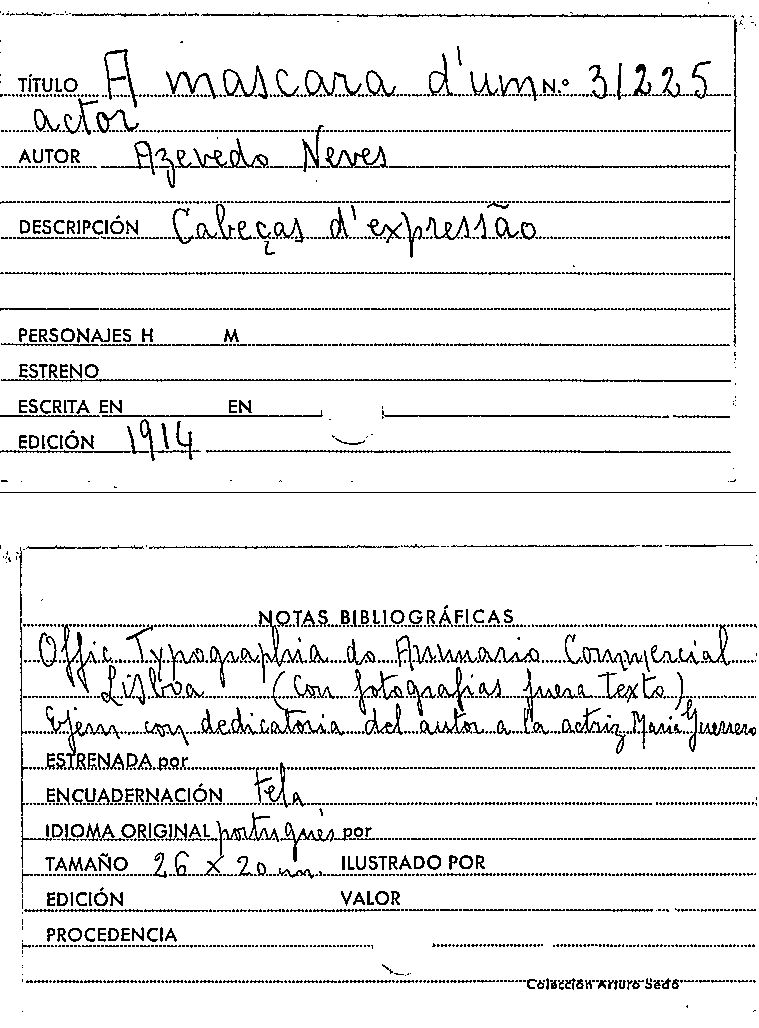 TÍTULO A mascara d'um N.º 31225
actor
AUTOR Azevedo Neves
DESCRIPCIÓN Cabeças d'expressão
PERSONAJES H M
ESTRENO
ESCRITA EN EN
EDICIÓN 1914
NOTAS BIBLIOGRÁFICAS
Offic Typographia do Annuario Commercial
Lisboa (Con fotografias fuera texto)
Ejem con dedicatoria del autor a la actriz Maria Guerrero
ESTRENADA por
ENCUADERNACIÓN tela
IDIOMA ORIGINAL portugués por
TAMAÑO 26 x 20 ILUSTRADO POR
EDICIÓN VALOR
PROCEDENCIA
Colección Arturo Sedó